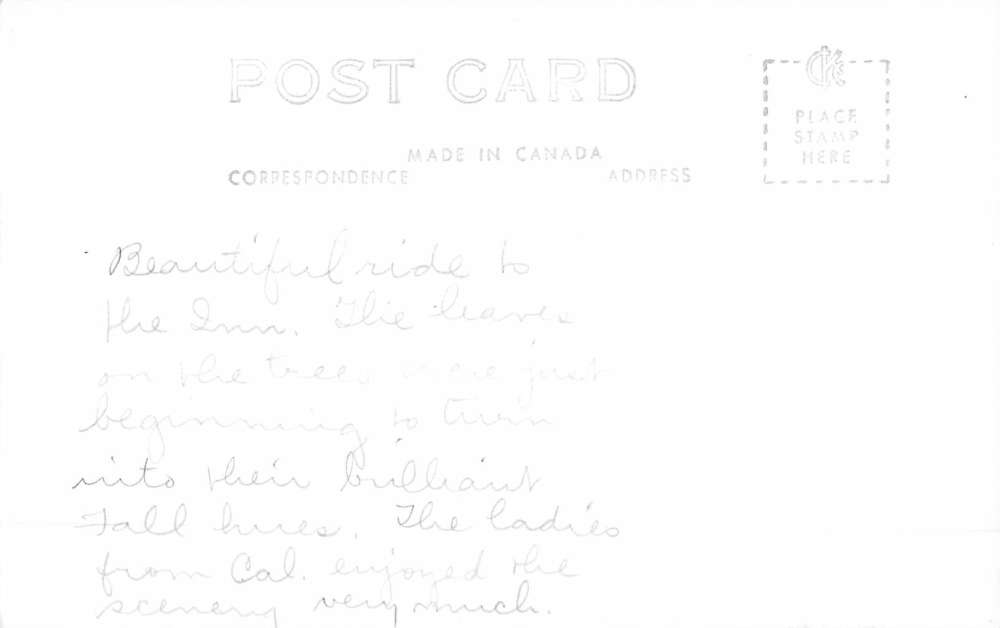 POST CARD
CKC
PLACE
STAMP
HERE
MADE IN CANADA
CORRESPONDENCE ADDRESS
Beautiful ride to
the Inn. The leaves
on the trees were just
beginning to turn
into their brilliant
Fall hues. The ladies
from Cal. enjoyed the
scenery very much.